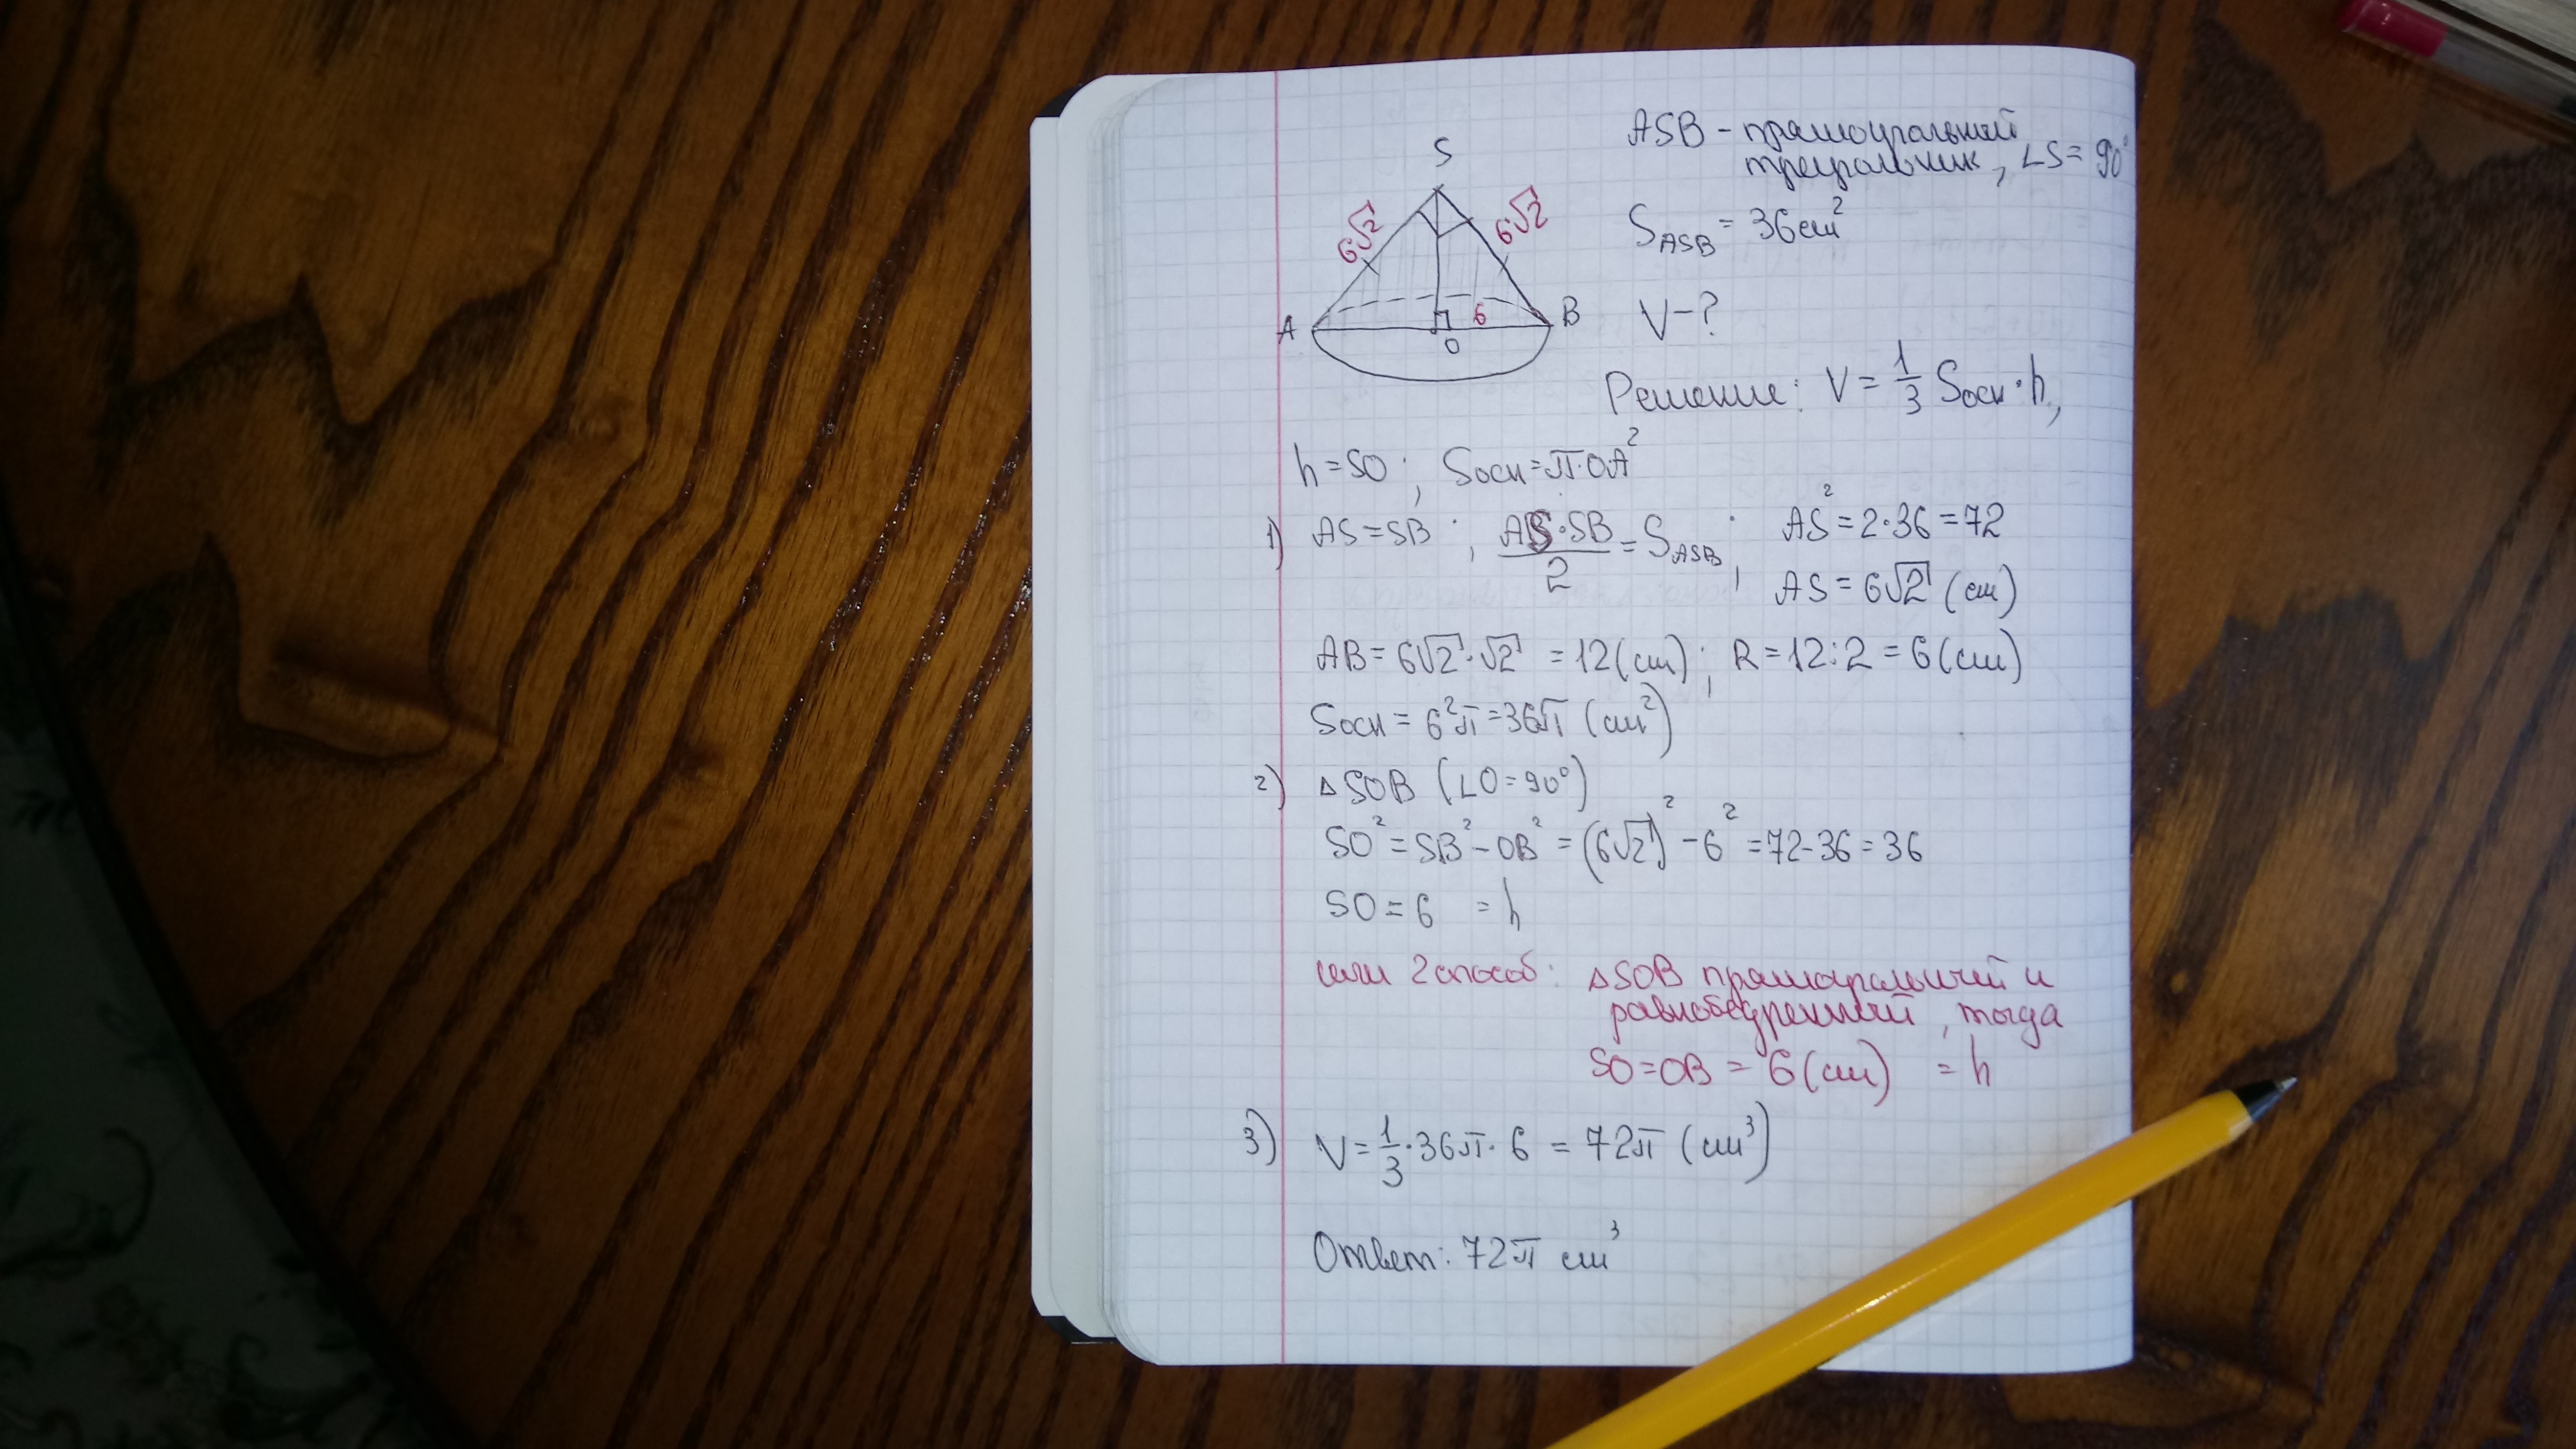 S
6√2
6√2
A
6
B
O
ASB - прямоугольный
треугольник, ∠S = 90°
S_ASB = 36 см²
V - ?
Решение: V = 1/3 Sосн · h,
h = SO ; Sосн = π·OA²
1) AS = SB ; AS·SB/2 = S_ASB ; AS² = 2·36 = 72
AS = 6√2 (см)
AB = 6√2·√2 = 12 (см) ; R = 12:2 = 6 (см)
Sосн = 6²π = 36π (см²)
2) ΔSOB (∠O = 90°)
SO² = SB² - OB² = (6√2)² - 6² = 72 - 36 = 36
SO = 6 = h
или 2 способ: ΔSOB прямоугольный и
равнобедренный, тогда
SO = OB = 6 (см) = h
3) V = 1/3·36π·6 = 72π (см³)
Ответ: 72π см³